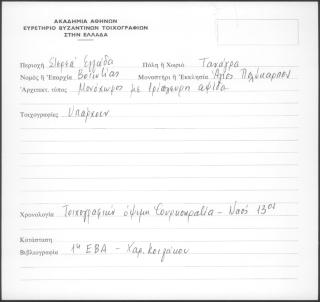 ΑΚΑΔΗΜΙΑ ΑΘΗΝΩΝ
ΕΥΡΕΤΗΡΙΟ ΒΥΖΑΝΤΙΝΩΝ ΤΟΙΧΟΓΡΑΦΙΩΝ
ΣΤΗΝ ΕΛΛΑΔΑ
Περιοχή Στερεά Ελλάδα Πόλη ή Χωριό Τανάγρα
Νομός ή Επαρχία Βοιωτίας Μοναστήρι ή Εκκλησία Άγιος Πολύκαρπος
Αρχιτεκτ. τύπος Μονόχωρος με τρίπλευρη αψίδα
Τοιχογραφίες Υπάρχουν
Χρονολογία Τοιχογραφιών όψιμη Τουρκοκρατία - Ναός 13ος
Κατάσταση
Βιβλιογραφία 1η ΕΒΑ - Χαρ. Κοιλάκου